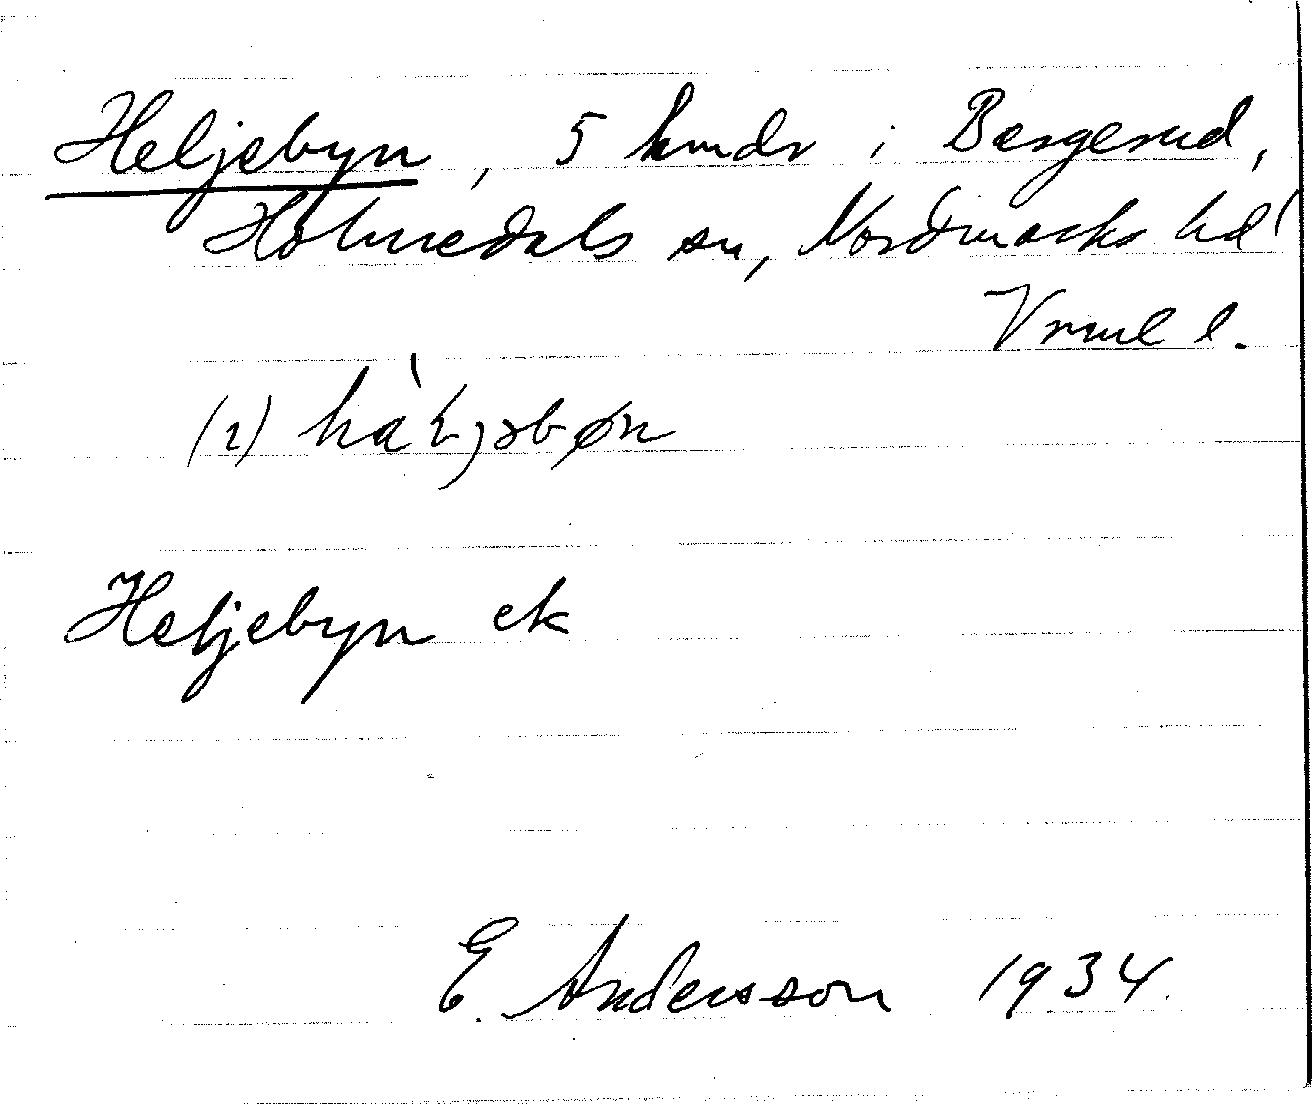 Heljebyn, 5 hmdr i Bergerud,
Holmedals sn, Nordmarks hd
Vrml l.
(2) hàljəbøn
Heljebyn ek
E. Andersson 1934.